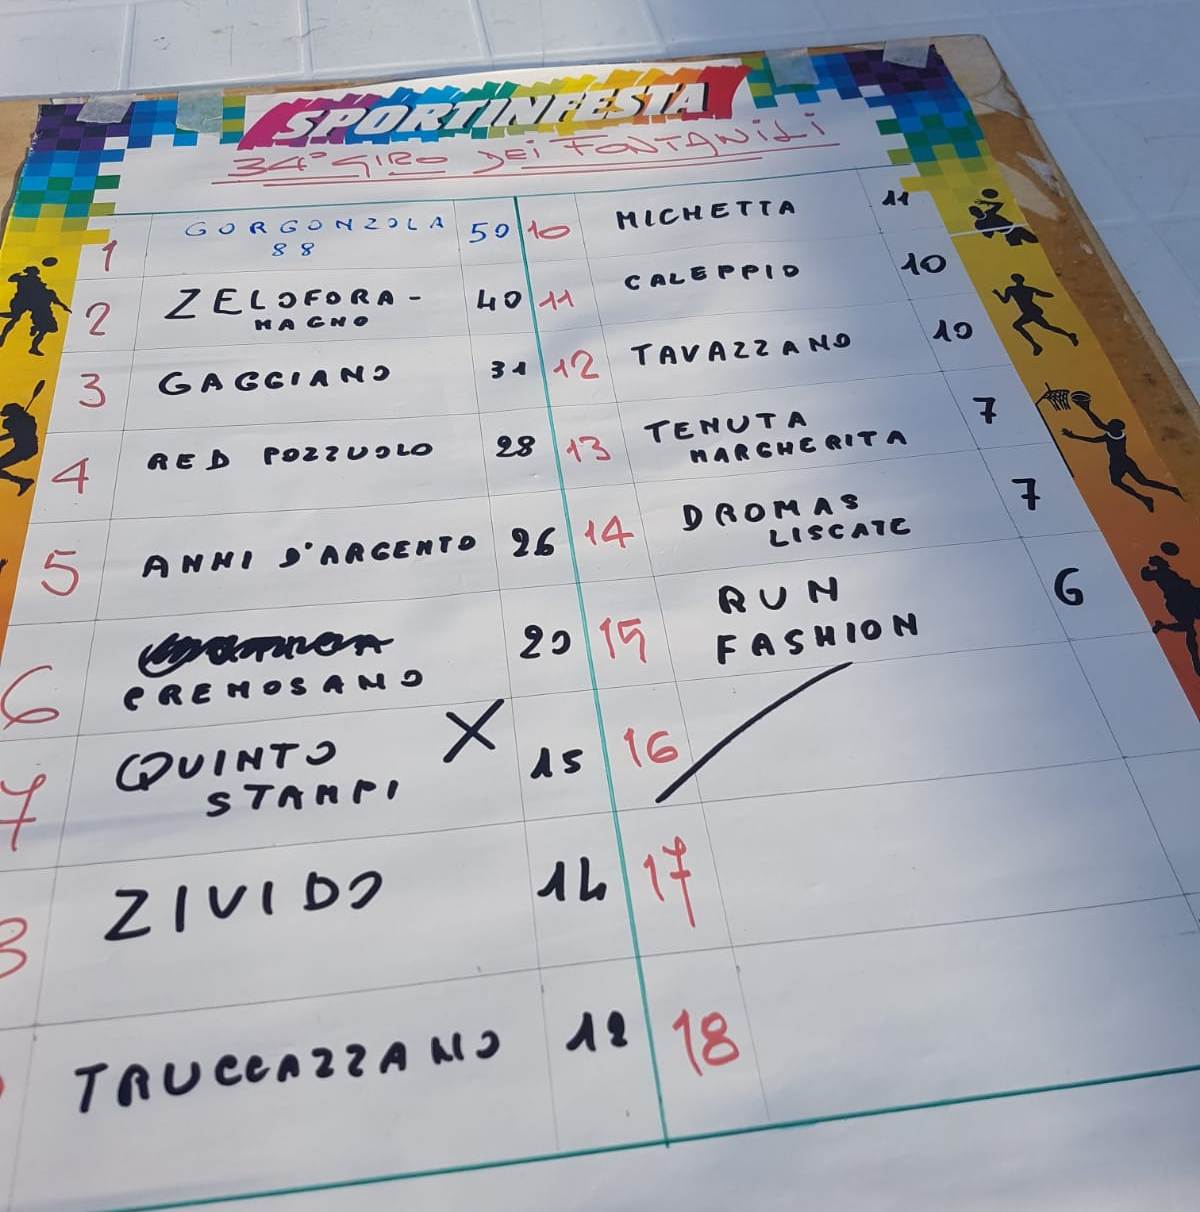 SPORTINFESTA
34° GIRO DEI FONTANILI
1 GORGONZOLA 50
88
2 ZELOFORA- 40
MAGNO
3 GAGGIANO 31
4 RED POZZUOLO 28
5 ANNI D'ARGENTO 26
6 20
PREMOSANO
7 QUINTO X 15
STAMPI
8 ZIVIDO 14
TRUCCAZZANO 12
10 MICHETTA 11
11 CALEPPIO 10
12 TAVAZZANO 10
13 TENUTA 7
MARGHERITA
14 DROMAS 7
LISCATE
15 RUN 6
FASHION
16
17
18